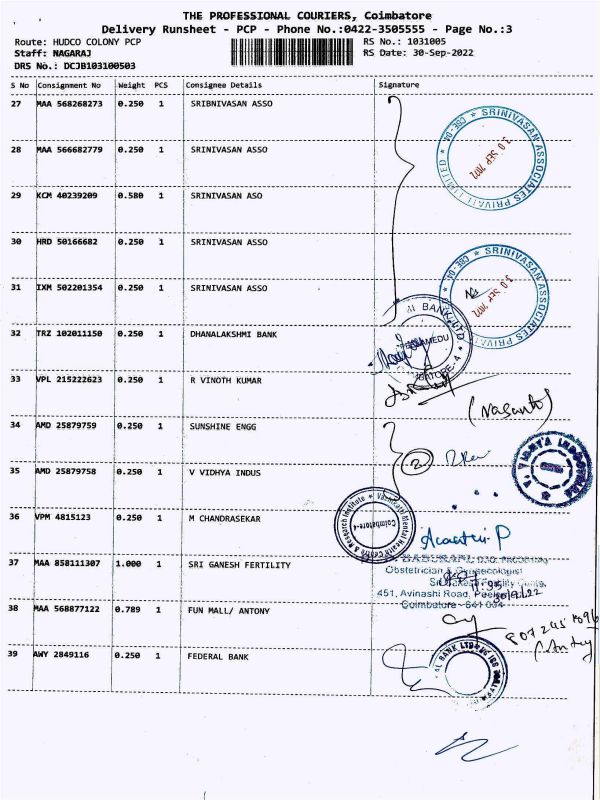 THE PROFESSIONAL COURIERS, Coimbatore
Delivery Runsheet - PCP - Phone No.:0422-3505555 - Page No.:3
Route: HUDCO COLONY PCP RS No.: 1031005
Staff: NAGARAJ RS Date: 30-Sep-2022
DRS No.: DCJB103100503
S No Consignment No Weight PCS Consignee Details Signature
27 MAA 568268273 0.250 1 SRIBNIVASAN ASSO
SRINIVASAN ASSOCIATES PRIVATE LIMITED * CBE-04 *
30 SEP 2022
28 MAA 566682779 0.250 1 SRINIVASAN ASSO
29 KCM 40239209 0.580 1 SRINIVASAN ASO
30 HRD 50166682 0.250 1 SRINIVASAN ASSO
31 IXM 502201354 0.250 1 SRINIVASAN ASSO
SRINIVASAN ASSOCIATES PRIVATE * CBE-04 *
30 SEP 2022
32 TRZ 102011150 0.250 1 DHANALAKSHMI BANK
BANK LTD
33 VPL 215222623 0.250 1 R VINOTH KUMAR
34 AMD 25879759 0.250 1 SUNSHINE ENGG
2
35 AMD 25879758 0.250 1 V VIDHYA INDUS
36 VPM 4815123 0.250 1 M CHANDRASEKAR
Mental Health Centre & Research Institute
Coimbatore-4
37 MAA 858111307 1.000 1 SRI GANESH FERTILITY
Obstetrician & Gynaecologist
451, Avinashi Road,
Coimbatore - 641 004
38 MAA 568877122 0.789 1 FUN MALL/ ANTONY
39 AWY 2849116 0.250 1 FEDERAL BANK
BANK LTD